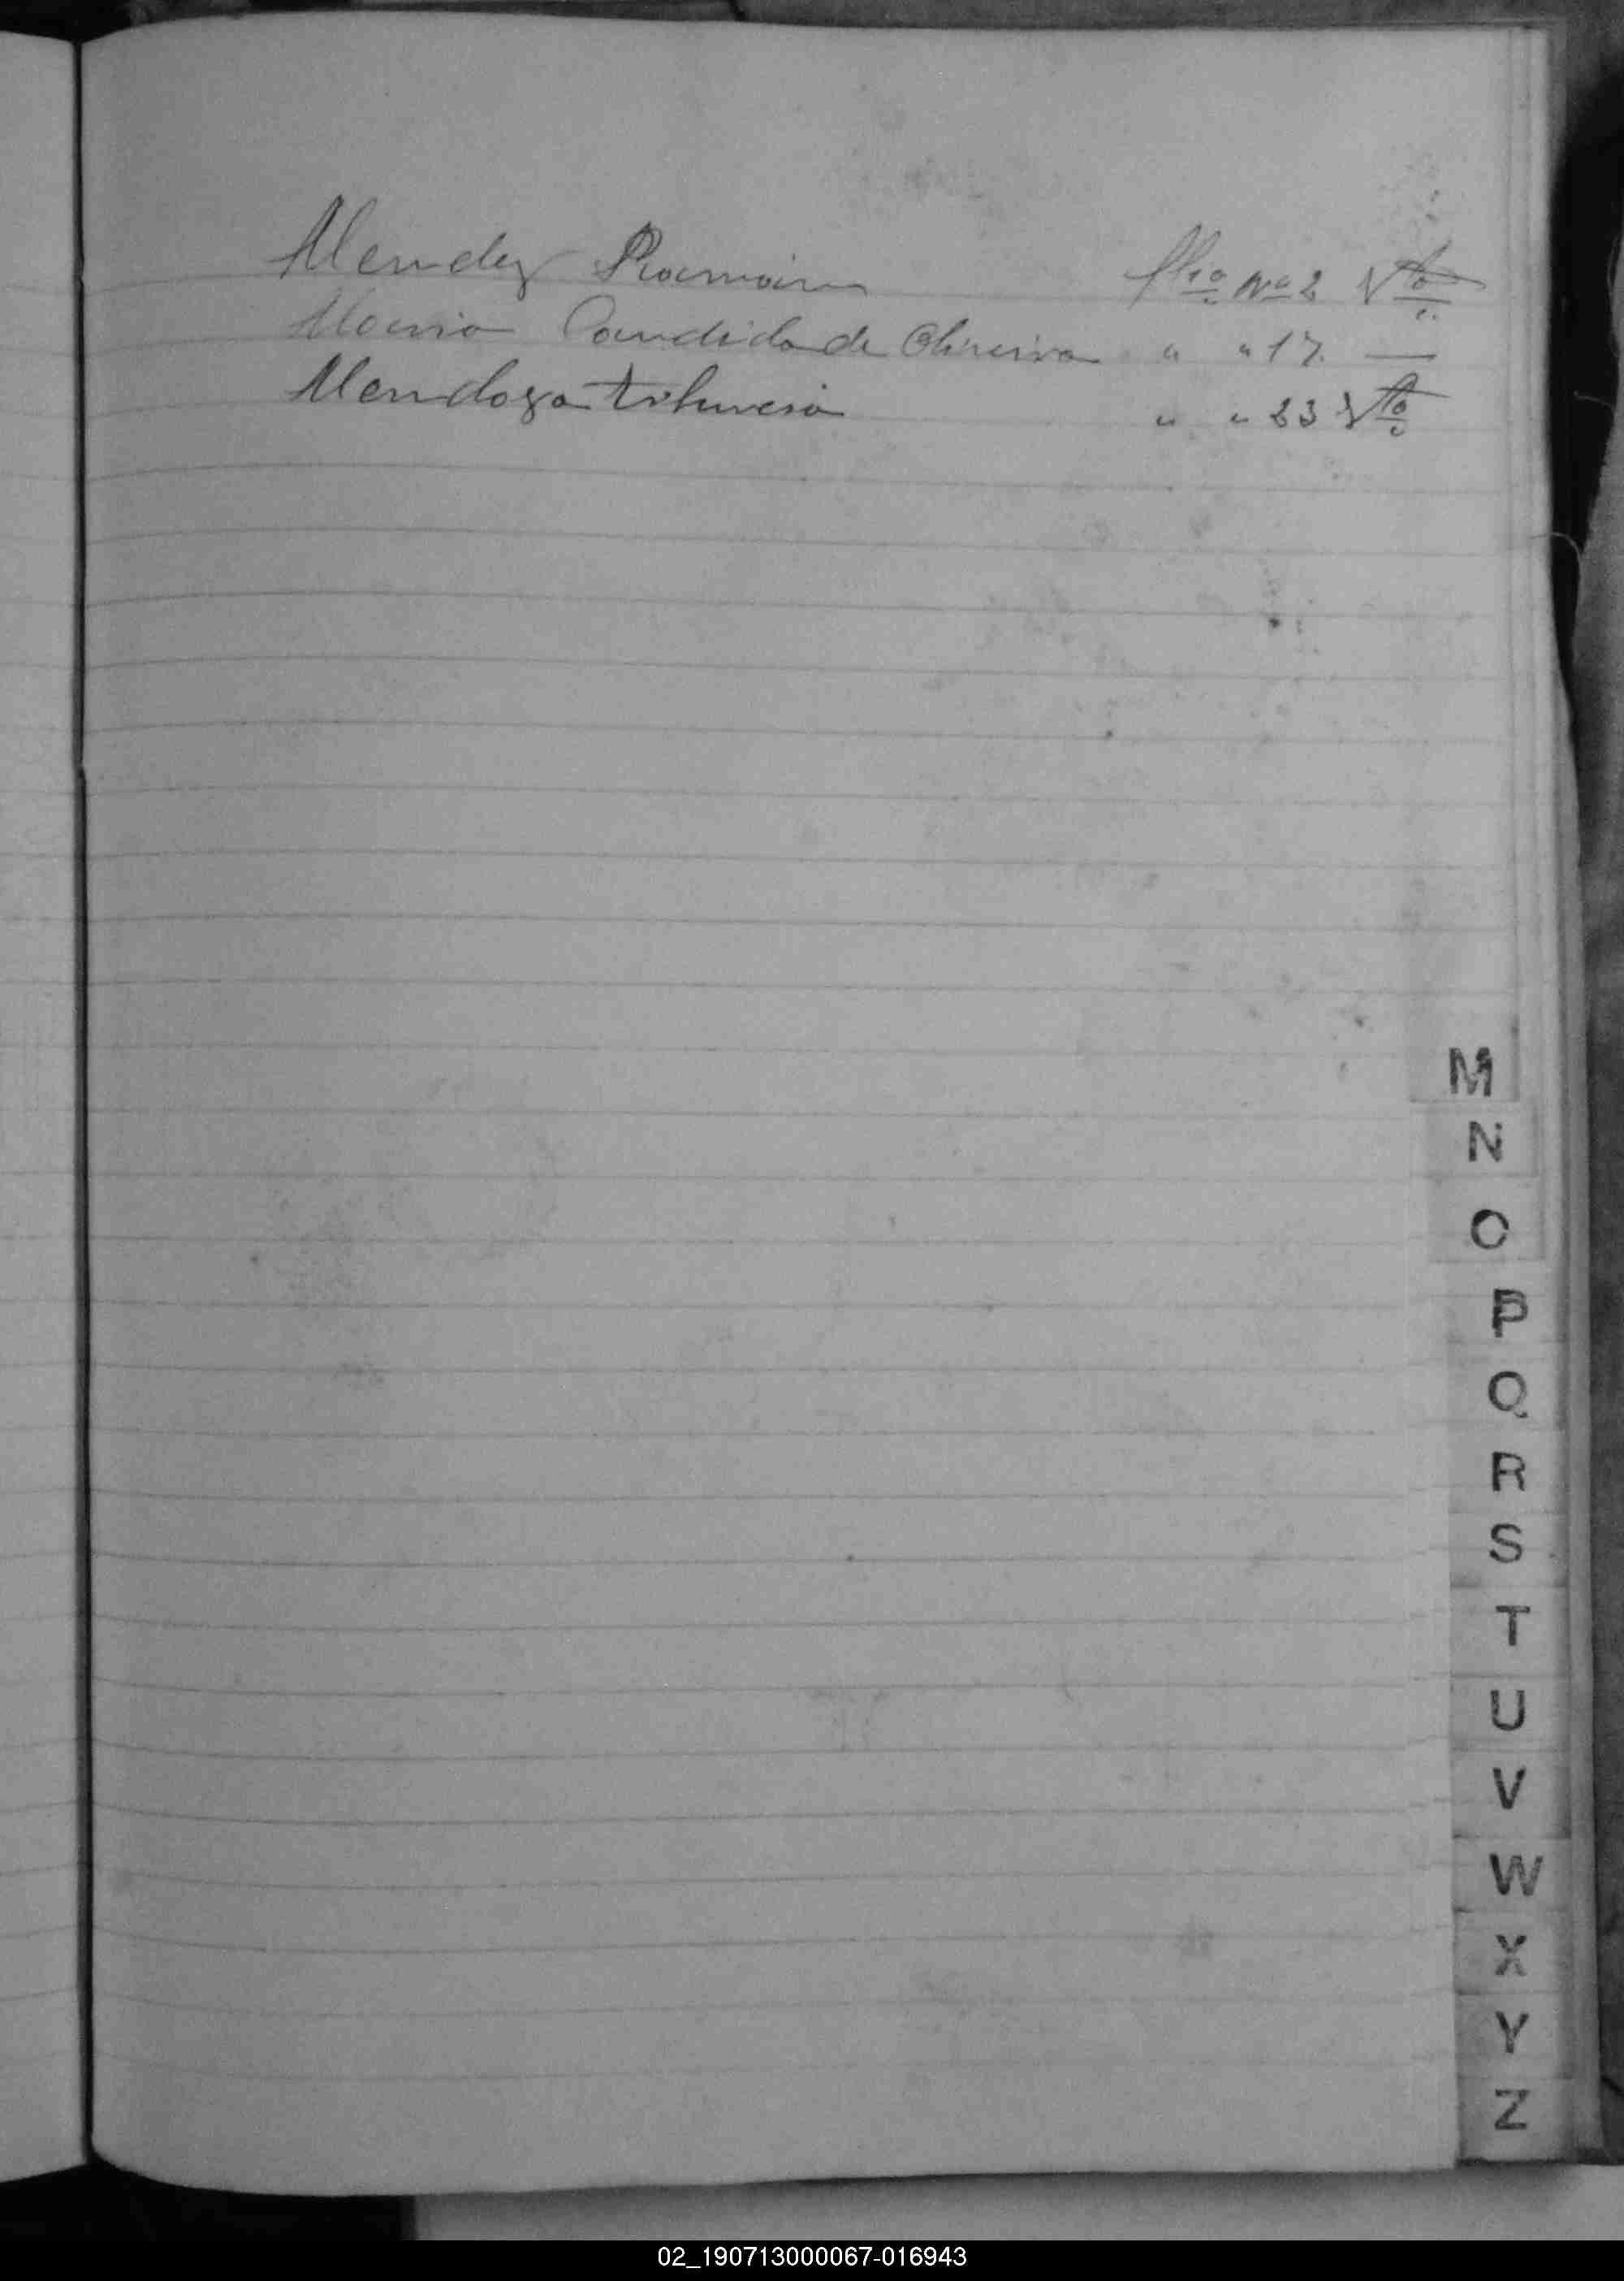 Mendez Ramon flio No 2 Vto
Maria Candida de Oliveira " " 17. —
Mendoza Tiburcia " " 23 Vto
M
N
O
P
Q
R
S
T
U
V
W
X
Y
Z
02_190713000067-016943